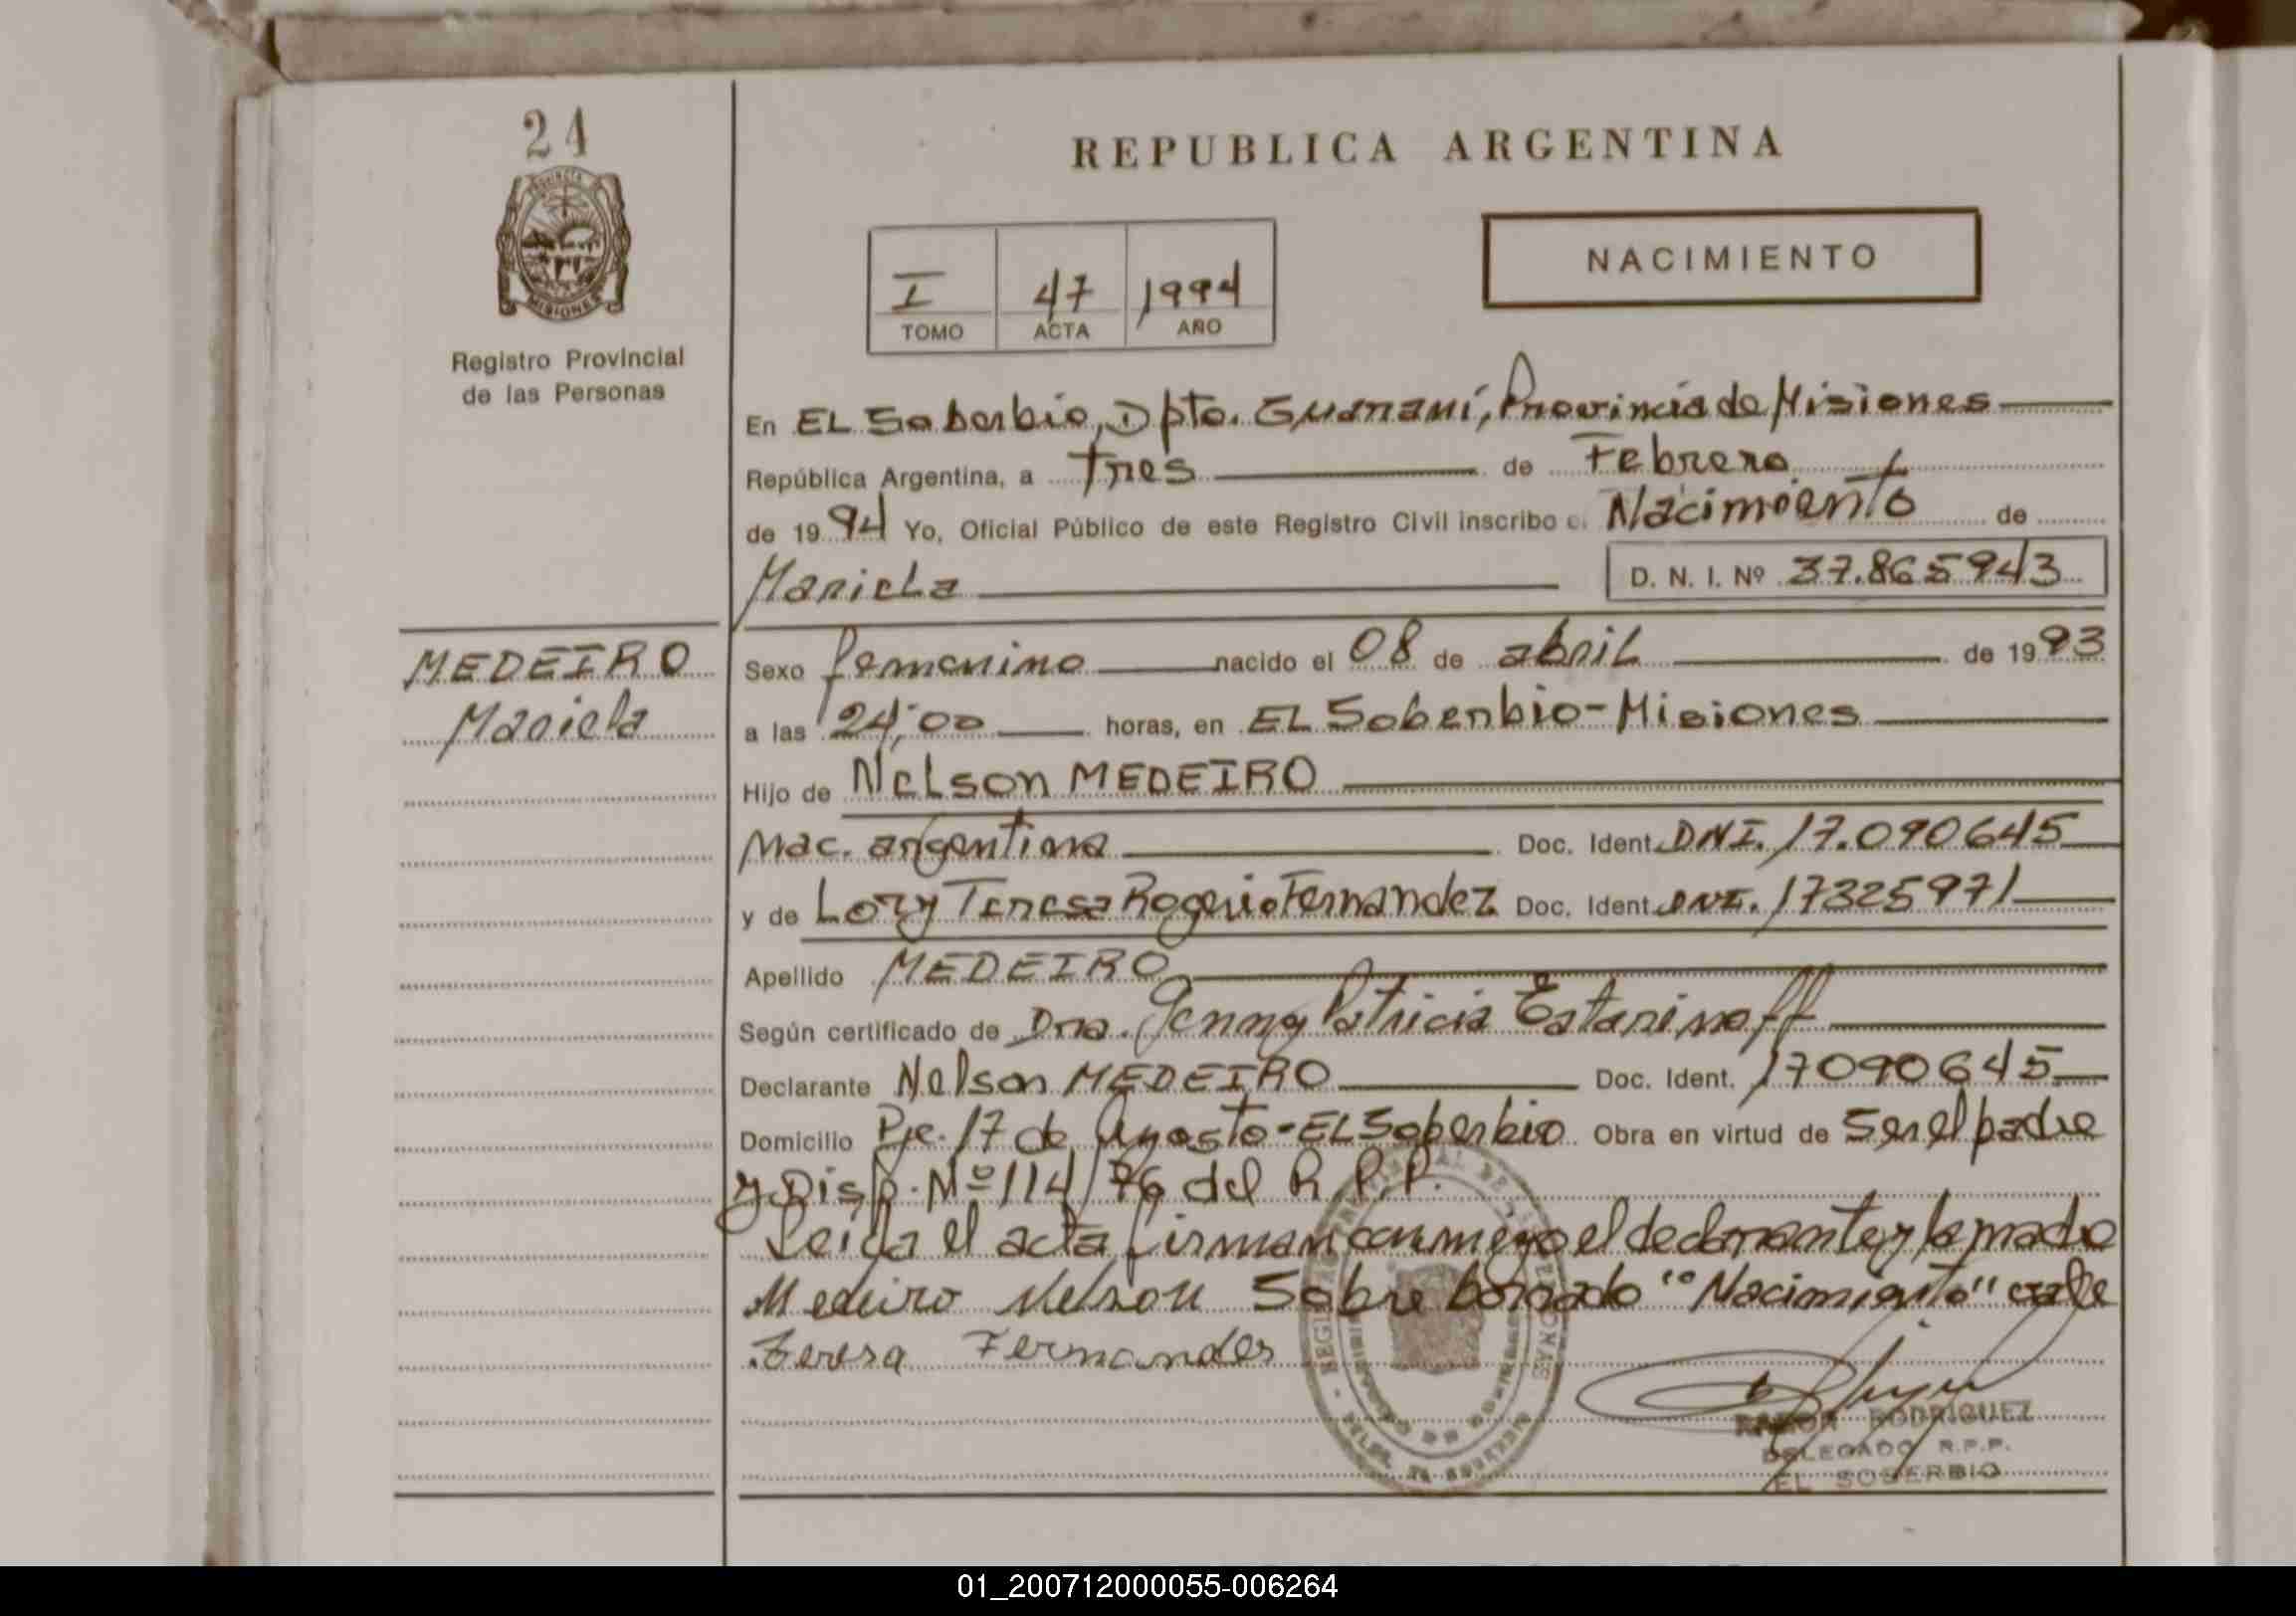 24
PROVINCIA DE
MISIONES
Registro Provincial
de las Personas
MEDEIRO
Mariela
REPUBLICA ARGENTINA
I 47 1994
TOMO ACTA AÑO
NACIMIENTO
En EL Soberbio, Dpto. Guaraní, Provincia de Misiones
República Argentina, a tres de Febrero
de 1994 Yo, Oficial Público de este Registro Civil inscribo el Nacimiento de
Mariela D. N. I. Nº 37.865943
Sexo femenino nacido el 08 de abril de 1993
a las 24,00 horas, en EL Soberbio-Misiones
Hijo de Nelson MEDEIRO
Nac. argentina Doc. Ident. DNI. 17.090645
y de Lozy Teresa Rogerio Fernandez Doc. Ident. DNI. 17325971
Apellido MEDEIRO
Según certificado de Dra. Jenny Patricia Estarinoff
Declarante Nelson MEDEIRO Doc. Ident. 17090645
Domicilio Pje. 17 de Agosto-EL Soberbio Obra en virtud de Ser el padre
y Disp. Nº 114/76 del R.P.P.
Leida el acta firman conmigo el declarante y la madre
Medeiro Nelson Sobre borrado "Nacimiento" vale
Teresa Fernandes
RAMON RODRIGUEZ
DELEGADO R.P.P.
EL SOBERBIO
01_200712000055-006264